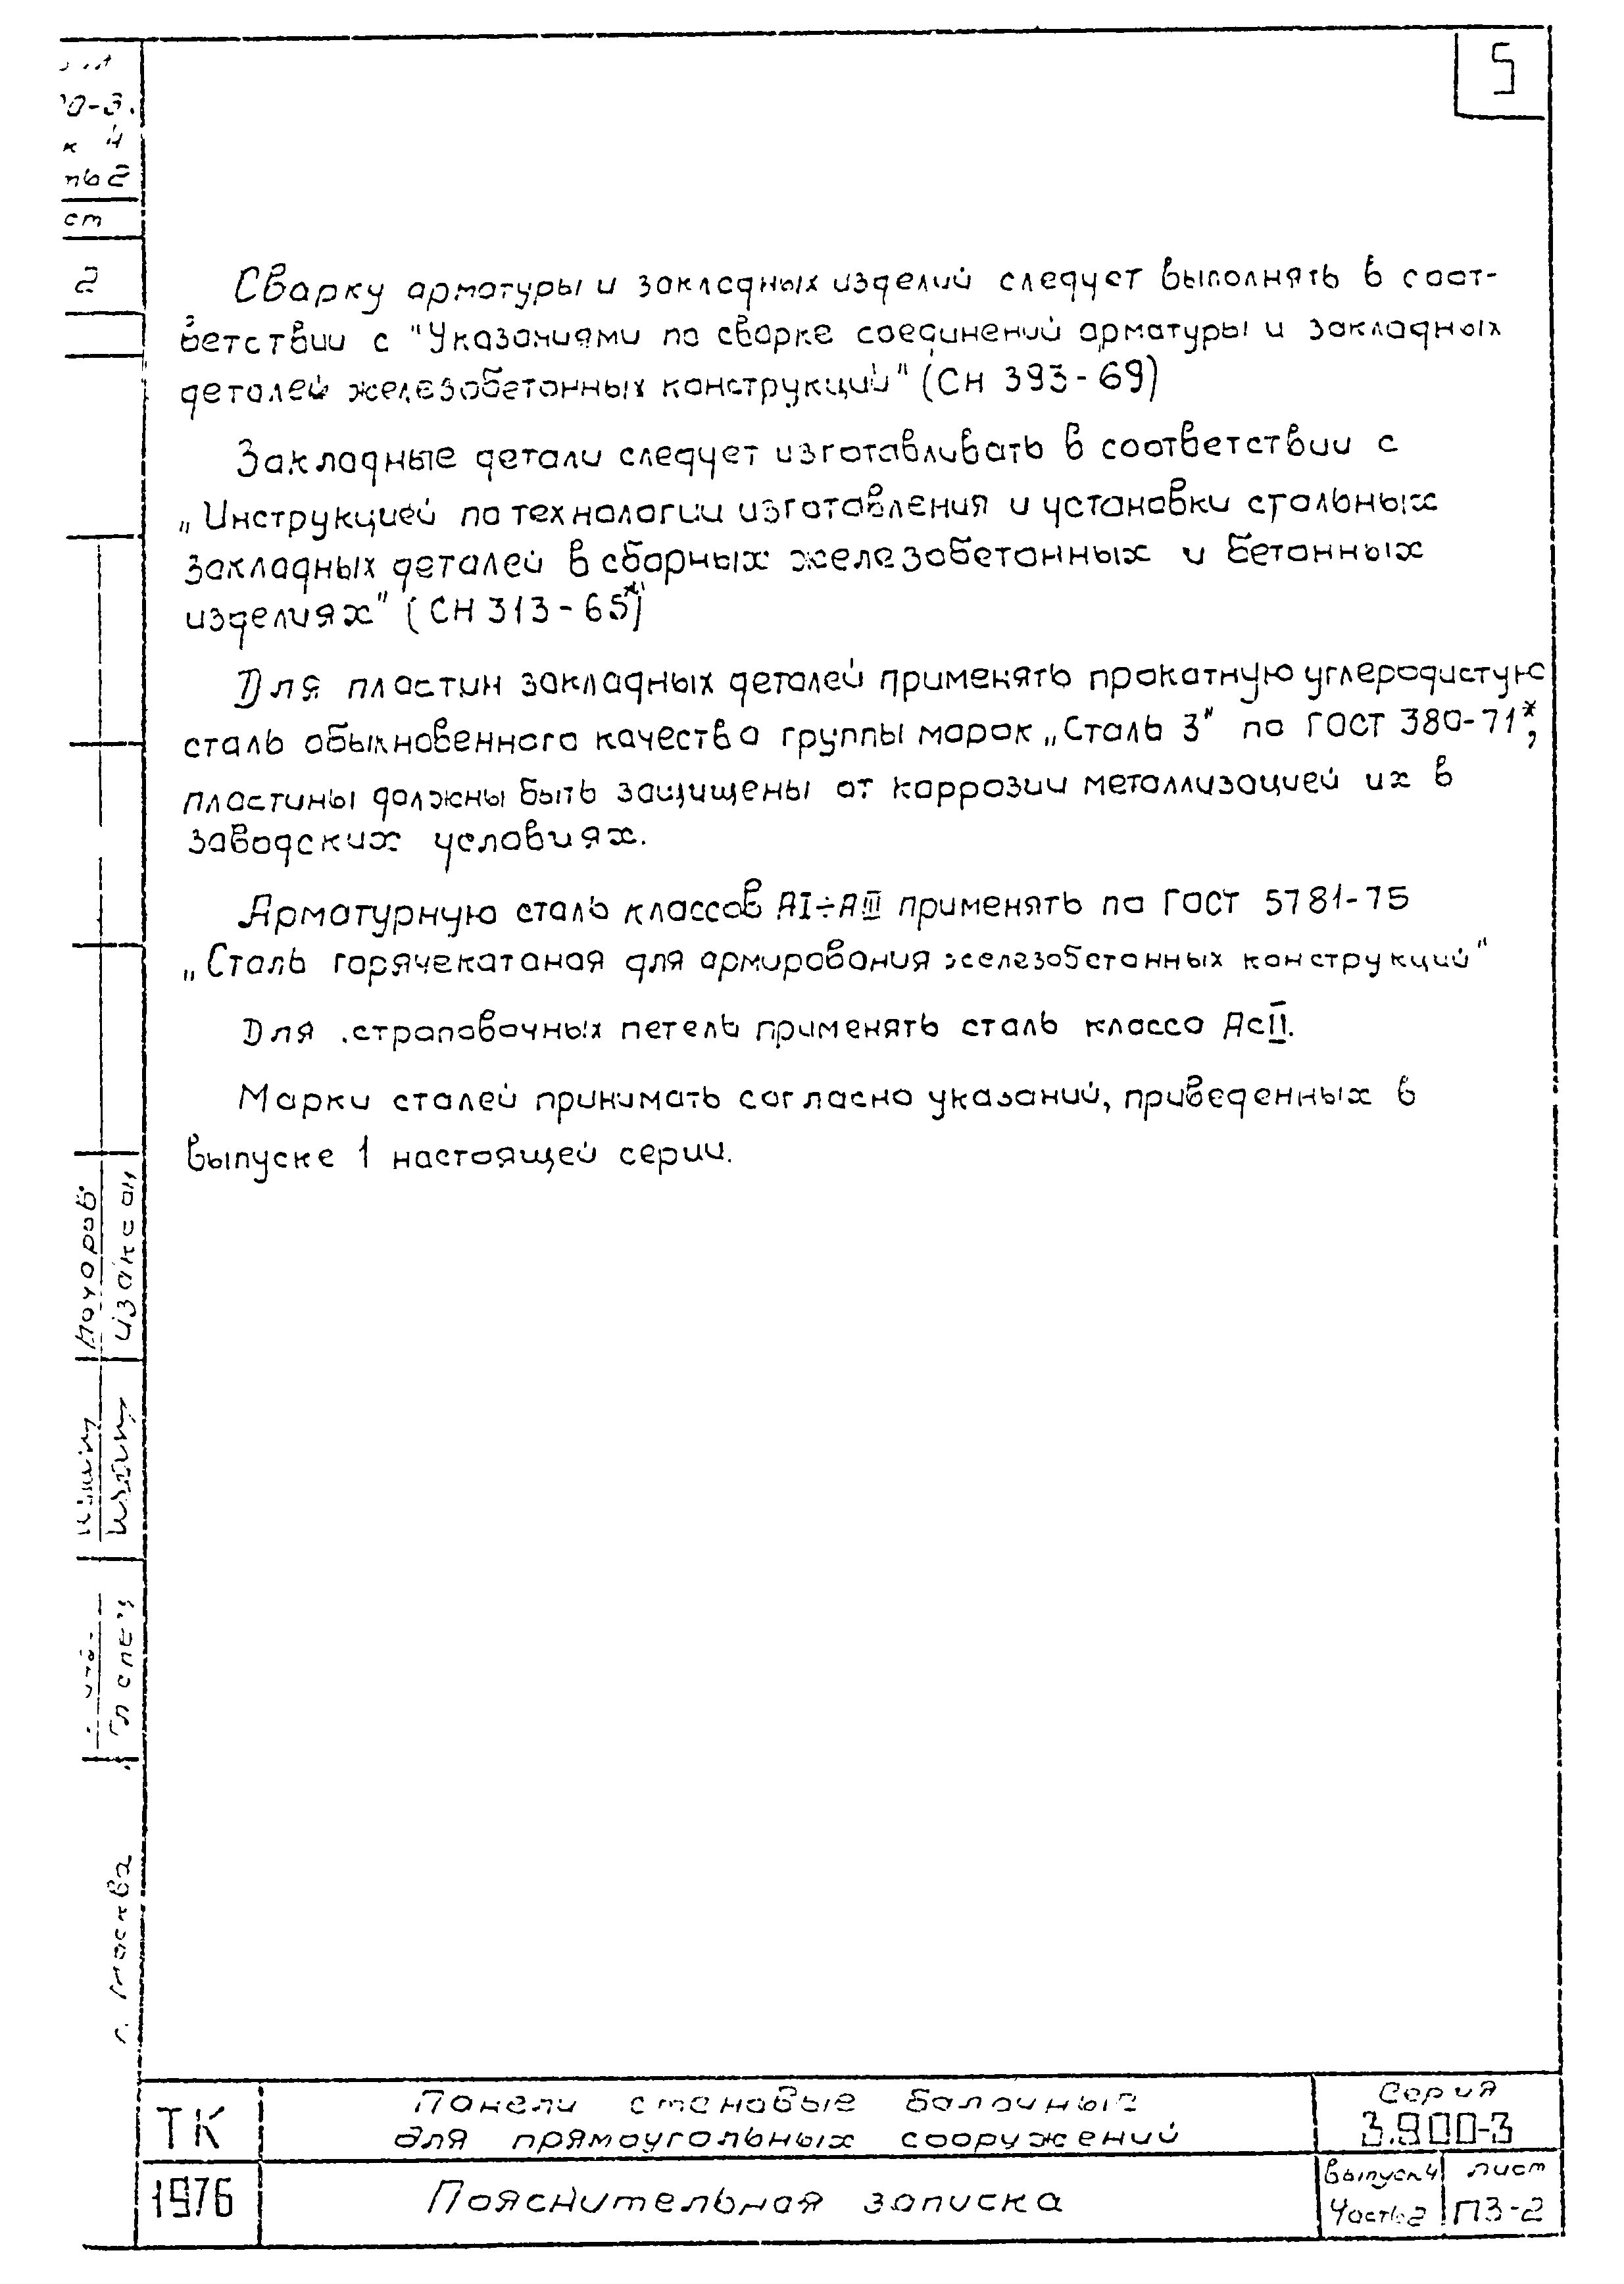 5
Сварку арматуры и закладных изделий следует выполнять в соот-
ветствии с "Указаниями по сварке соединений арматуры и закладных
деталей железобетонных конструкций" (СН 393-69)
Закладные детали следует изготавливать в соответствии с
„Инструкцией по технологии изготовления и установки стальных
закладных деталей в сборных железобетонных и бетонных
изделиях" (СН 313-65*)
Для пластин закладных деталей применять прокатную углеродистую
сталь обыкновенного качества группы марок „Сталь 3" по ГОСТ 380-71*,
пластины должны быть защищены от коррозии металлизацией их в
заводских условиях.
Арматурную сталь классов АI÷АIII применять по ГОСТ 5781-75
„Сталь горячекатаная для армирования железобетонных конструкций"
Для строповочных петель применять сталь класса АсII.
Марки сталей принимать согласно указаний, приведенных в
выпуске 1 настоящей серии.
0-3.
к 4
ть 2
ст
2
Изаксон
Гл спец
г. Москва
ТК
1976
Панели стеновые балочные
для прямоугольных сооружений
Пояснительная записка
Серия
3.900-3
выпуск 4 лист
Часть 2 ПЗ-2